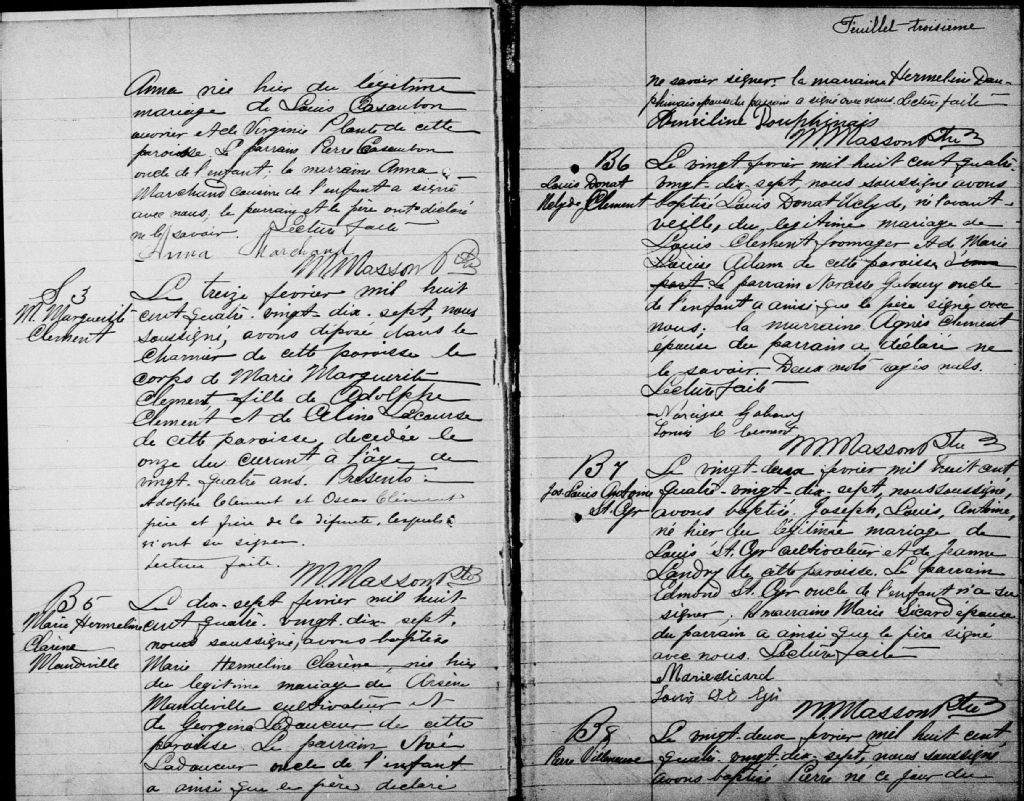 Anna née hier du légitime
mariage de Louis Casaubon
ouvrier et de Virginie Plante de cette
paroisse. Le parrain Pierre Casaubon
oncle de l'enfant; la marraine Anna
Marchand cousine de l'enfant a signé
avec nous, le parrain et le père ont déclaré
ne le savoir. Lecture faite
Anna Marchand
M Masson Ptre
S 3
M. Marguerite
Clement
Le treize fevrier mil huit
cent quatre-vingt-dix-sept, nous
soussigné, avons déposé dans le
charnier de cette paroisse le
corps d Marie Marguerite
Clement fille de Adolphe
Clement et de Celina Lacourse
de cette paroisse, decedée le
onze du courant à l'âge de
vingt-quatre ans. Présents:
Adolphe Clement et Oscar Clément
père et frère de la défunte, lesquels
n'ont su signer.
Lecture faite.
M Masson Ptre
B 5
Marie Hermeline
Clarène
Mandeville
Le dix-sept fevrier mil huit
cent quatre-vingt-dix-sept,
nous soussigné, avons baptisé
Marie Hermeline Clarène, née hier
du legitime mariage de Arsène
Mandeville cultivateur et
de Georgina Ladouceur de cette
paroisse. Le parrain Noé
Ladouceur oncle de l'enfant
a ainsi que le père declaré
Feuillet troisième
ne savoir signer. la marraine Hermeline Dau-
phinais épouse du parrain a signé avec nous. Lecture faite
Douphinais
M Masson Ptre
B6
Louis Donat
Clement
Le vingt fevrier mil huit cent quatre-
vingt-dix-sept, nous soussigné avons
baptisé Louis Donat né l'avant-
veille, du legitime mariage de
Louis Clement fromager et de Marie
Louise Adam de cette paroisse
Le parrain Narcisse Gaboury oncle
de l'enfant a ainsi que le père signé avec
nous; la marraine Agnès Clement
epouse du parrain a déclaré ne
le savoir. Deux mots rayés nuls.
Lecture faite
Narcisse Gaboury
Louis Clement
M Masson Ptre
B7
Jos Louis Antoine
St. Cyr
Le vingt-deux fevrier mil huit cent
quatre-vingt-dix-sept, nous soussigné,
avons baptisé Joseph, Louis, Antoine,
né hier du légitime mariage de
Louis St. Cyr cultivateur et de Jeanne
Landry de cette paroisse. Le parrain
Edmond St. Cyr oncle de l'enfant n'a su
signer. La marraine Marie Sicard epouse
du parrain a ainsi que le père signé
avec nous. Lecture faite
Marie Sicard
Louis St Cyr
M Masson Ptre
B8
Pierre Villeneuve
Le vingt-deux fevrier mil huit cent
quatre-vingt-dix-sept, nous soussigné
avons baptisé Pierre né ce jour du